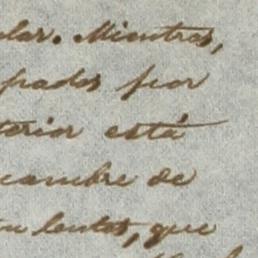 ular. Mientras,
pados por
terior está
cambre de
tan lentos, que